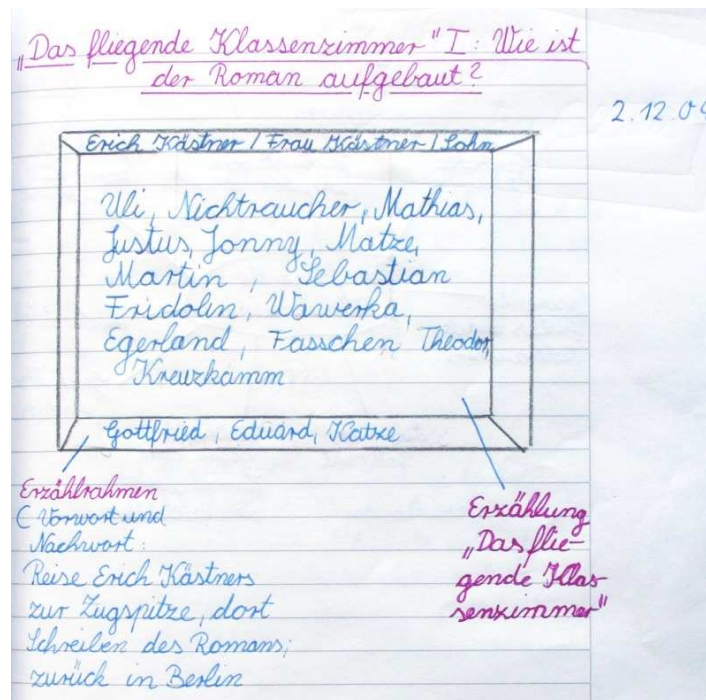 „Das fliegende Klassenzimmer" I: Wie ist
der Roman aufgebaut?
2.12.09
Erich Kästner / Frau Kästner / Sohn
Uli, Nichtraucher, Mathias,
Justus, Jonny, Matze,
Martin, Sebastian
Fridolin, Wawerka,
Egerland, Fasschen Theodor,
Kreuzkamm
Gottfried, Eduard, Katze
Erzählrahmen
( Vorwort und
Nachwort:
Reise Erich Kästners
zur Zugspitze, dort
Schreiben des Romans;
zurück in Berlin
Erzählung
„Das flie-
gende Klas-
senzimmer"